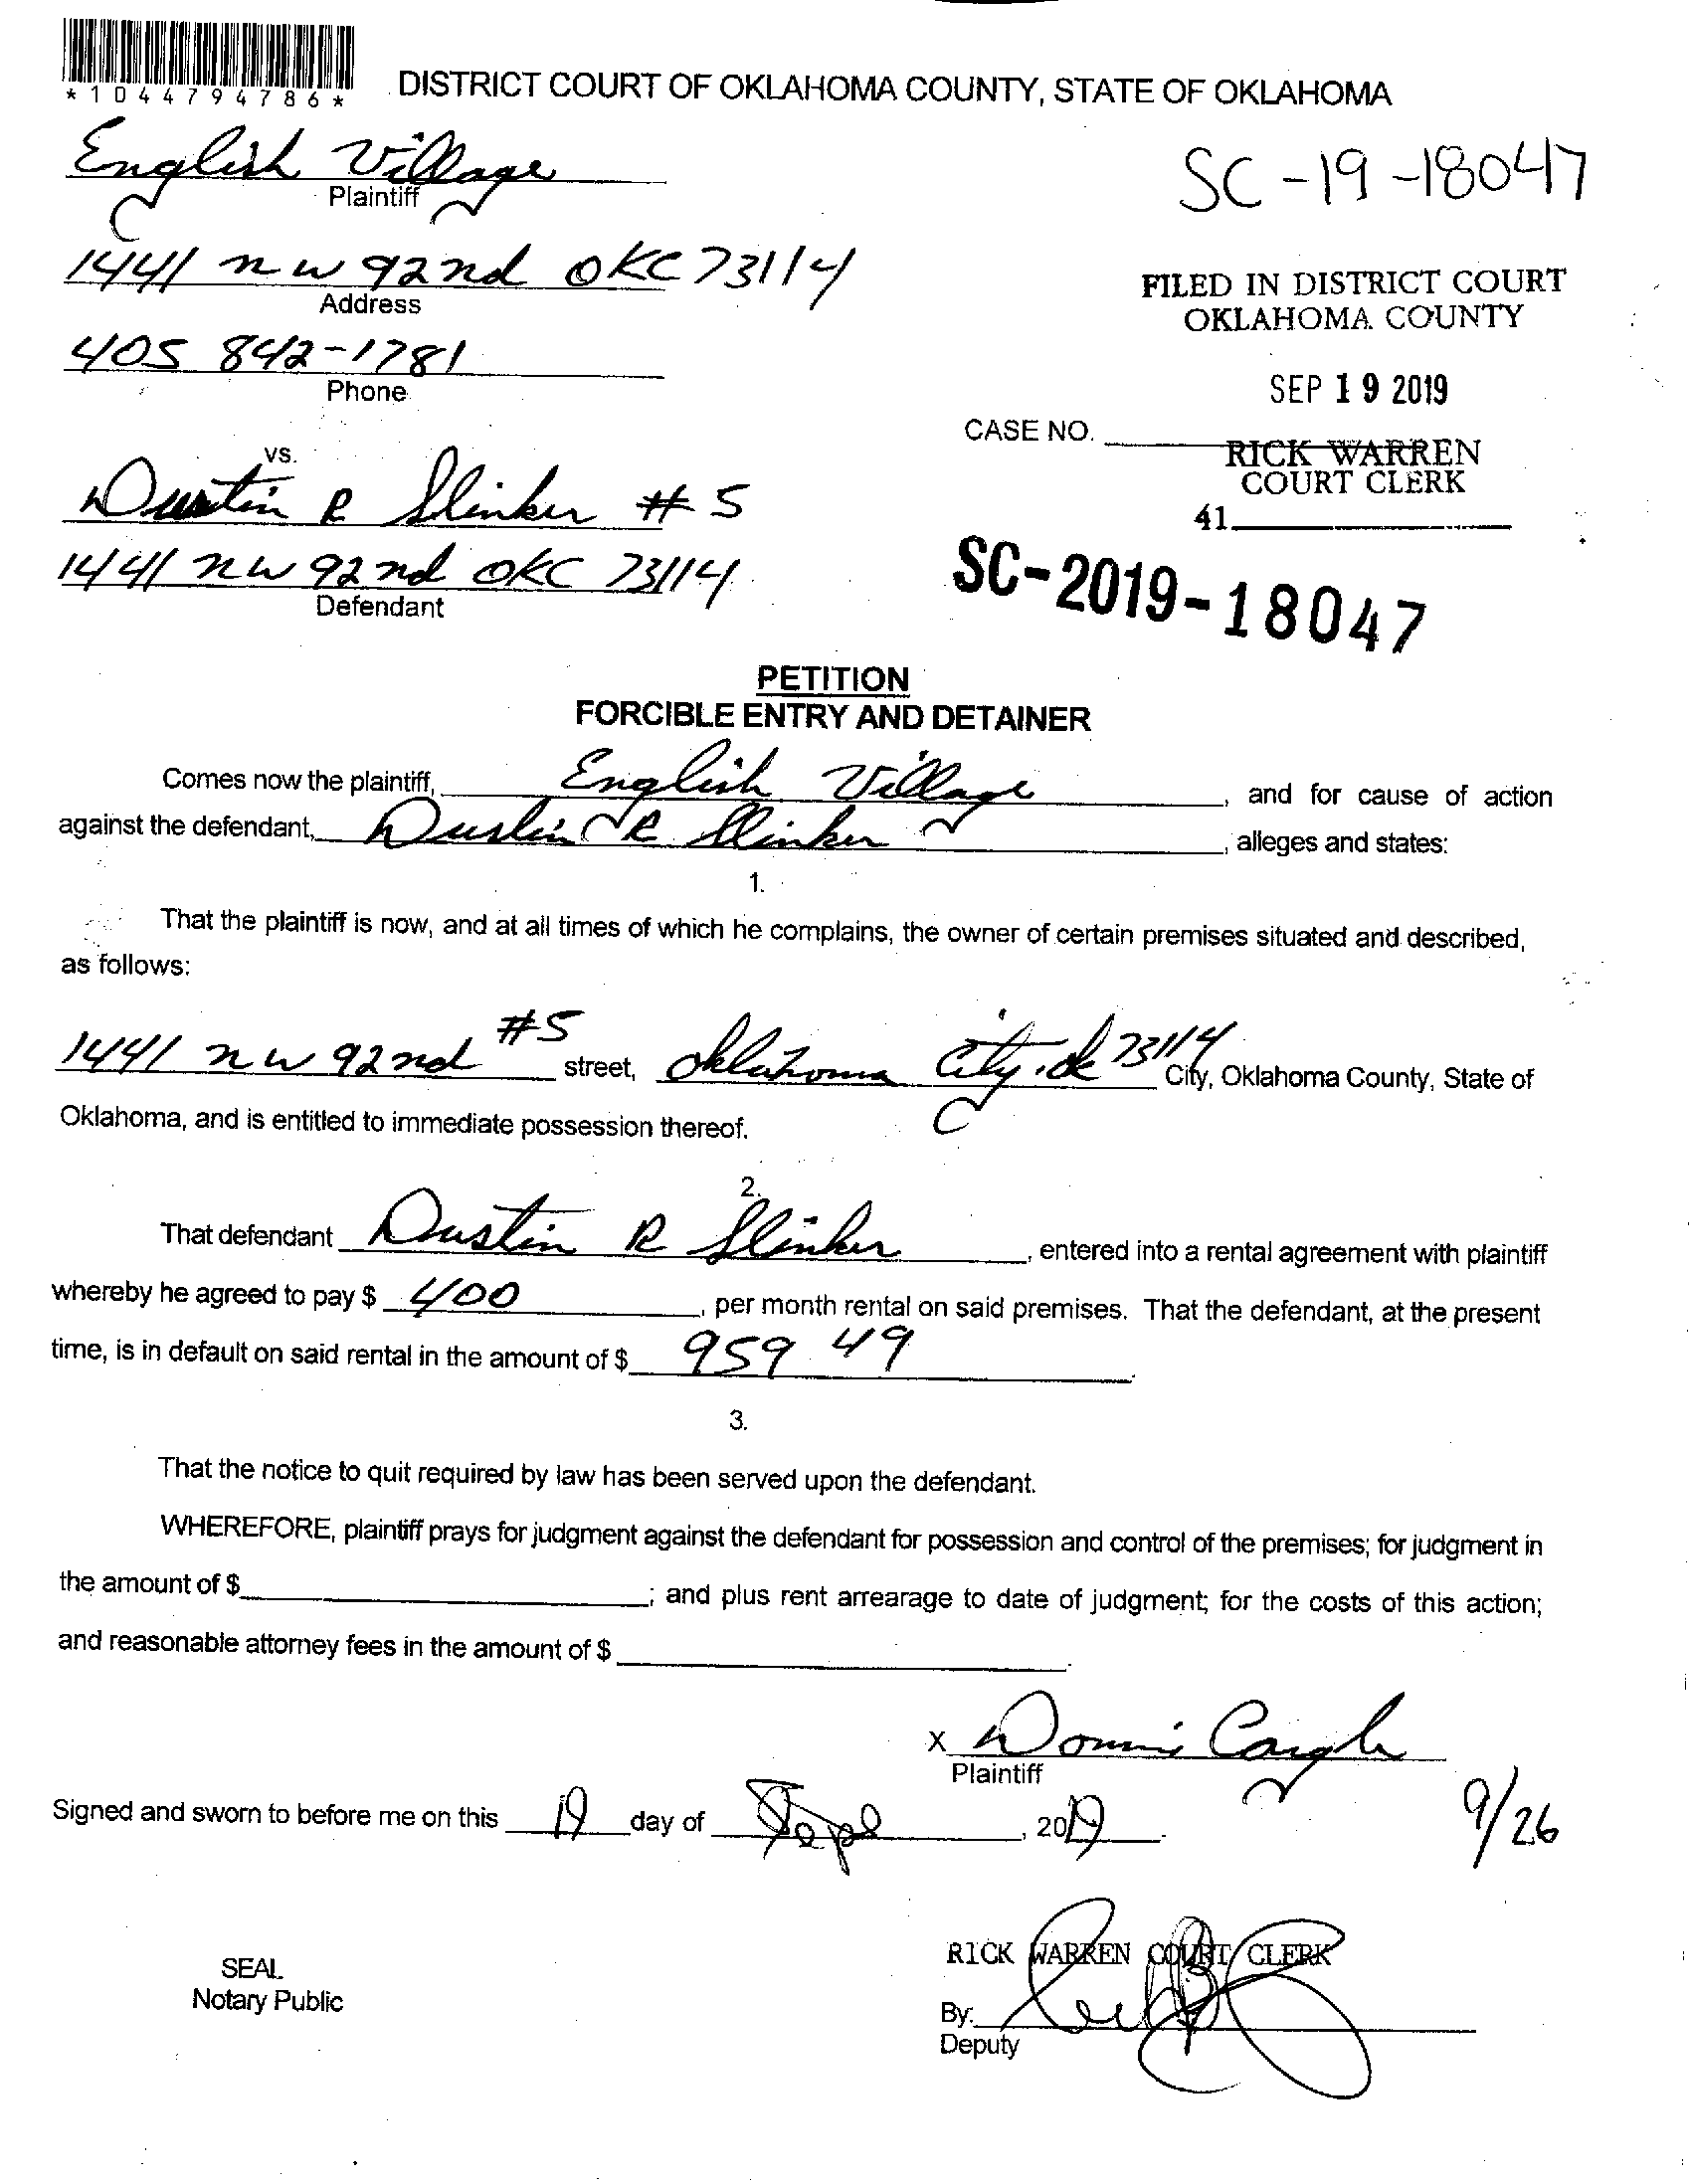 *1044794786*
DISTRICT COURT OF OKLAHOMA COUNTY, STATE OF OKLAHOMA
English Village
Plaintiff
SC-19-18047
1441 nw 92nd OKC 73114
Address
FILED IN DISTRICT COURT
OKLAHOMA COUNTY
405 842-1781
Phone
SEP 19 2019
CASE NO.
RICK WARREN
COURT CLERK
vs.
Dustin R Slinker #5
41
1441 nw 92nd OKC 73114
Defendant
SC-2019-18047
PETITION
FORCIBLE ENTRY AND DETAINER
Comes now the plaintiff, English Village, and for cause of action
against the defendant, Dustin R Slinker, alleges and states:
1.
That the plaintiff is now, and at all times of which he complains, the owner of certain premises situated and described,
as follows:
1441 nw 92nd #5 street, Oklahoma City, Ok 73114 City, Oklahoma County, State of
Oklahoma, and is entitled to immediate possession thereof.
2.
That defendant Dustin R Slinker, entered into a rental agreement with plaintiff
whereby he agreed to pay $ 400, per month rental on said premises. That the defendant, at the present
time, is in default on said rental in the amount of $ 959 49.
3.
That the notice to quit required by law has been served upon the defendant.
WHEREFORE, plaintiff prays for judgment against the defendant for possession and control of the premises; for judgment in
the amount of $ ; and plus rent arrearage to date of judgment; for the costs of this action;
and reasonable attorney fees in the amount of $ .
X
Plaintiff
Signed and sworn to before me on this 19 day of Sept, 2019.
9/26
RICK WARREN COURT CLERK
SEAL
Notary Public
By:
Deputy